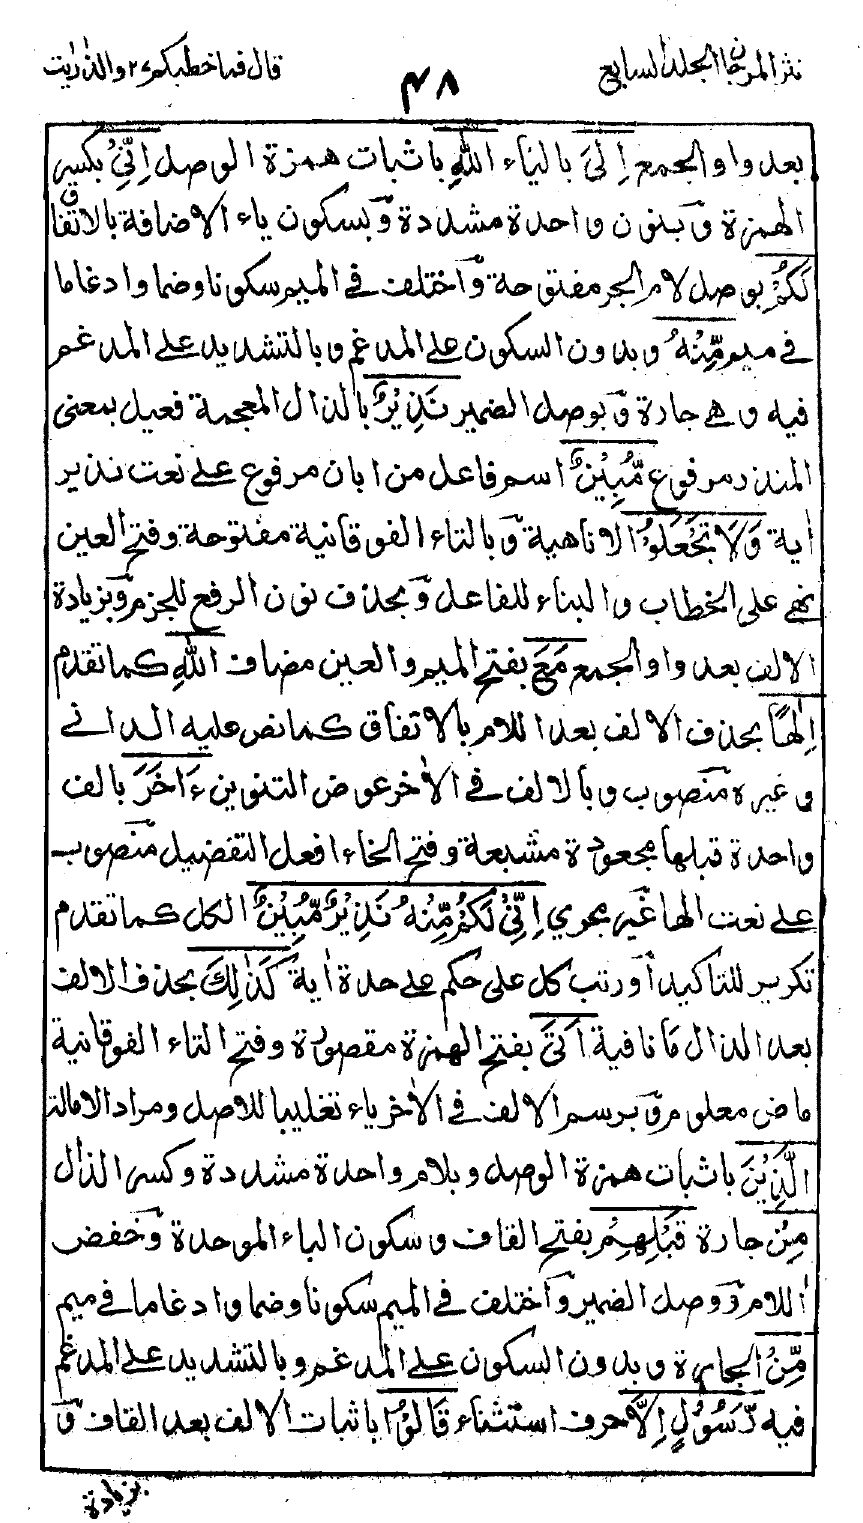 نثر المرجان الجلد السابع
٤٨
قال فما خطبكم ٢٧ والذٰرٰيٰت
بعد واو الجمع اِلَى بالياء اللّٰهِ باثبات همزة الوصل اِنِّيْ بكسر
الهمزة وَبنون واحدة مشددة وَّبسكون ياء الاضافة بالاتفاق
لَكُمْ بوصل لام الجر مفتوحة وَّاختلف في الميم سكونا وضما وادغاما
في ميم مِّنْهُ وبدون السكون على المدغم وبالتشديد على المدغم
فيه وهي جارة وَبوصل الضمير نَذِيْرٌ بالذال المعجمة فعيل بمعنى
المنذر مرفوع مُّبِيْنٌ اسم فاعل من ابان مرفوع على نعت نذير
اٰية وَلَا تَجْعَلُوْا لا ناهية وَبالتاء الفوقانية مفتوحة وفتح العين
نهي على الخطاب والبناء للفاعل وَبحذف نون الرفع للجزم وَبزيادة
الالف بعد واو الجمع مَعَ بفتح الميم والعين مضاف اللّٰهِ كما تقدم
اِلٰهًا بحذف الالف بعد اللام بالاتفاق كما نص عليه الداني
وغيره مَنصوب وبالالف في الاٰخر عوض التنوين ءَاخَرَ بالف
واحدة قبلها مجعودة مشبعة وفتح الخاء افعل التفضيل مَنصوب
على نعت الها غَير مجري اِنِّيْ لَكُمْ مِّنْهُ نَذِيْرٌ مُّبِيْنٌ الكل كما تقدم
تكرير للتاكيد اَو رتب كل على حكم على حدة اٰية كَذٰلِكَ بحذف الالف
بعد الذال مَا نافية اَتَى بفتح الهمزة مقصورة وفتح التاء الفوقانية
ماض معلوم وَبرسم الالف في الاٰخر ياء تغليبا للاصل ومراد الامالة
الَّذِيْنَ باثبات همزة الوصل وبلام واحدة مشددة وكسر الذال
مِنْ جارة قَبْلِهِمْ بفتح القاف وسكون الباء الموحدة وَخفض
اللام وَوصل الضمير وَاختلف في الميم سكونا وضما وادغاما في ميم
مِّنْ الجارة وبدون السكون على المدغم وبالتشديد على المدغم
فيه رَّسُوْلٍ اِلَّا حرف استثناء قَالُوْا باثبات الالف بعد القاف وَ
بزيادة